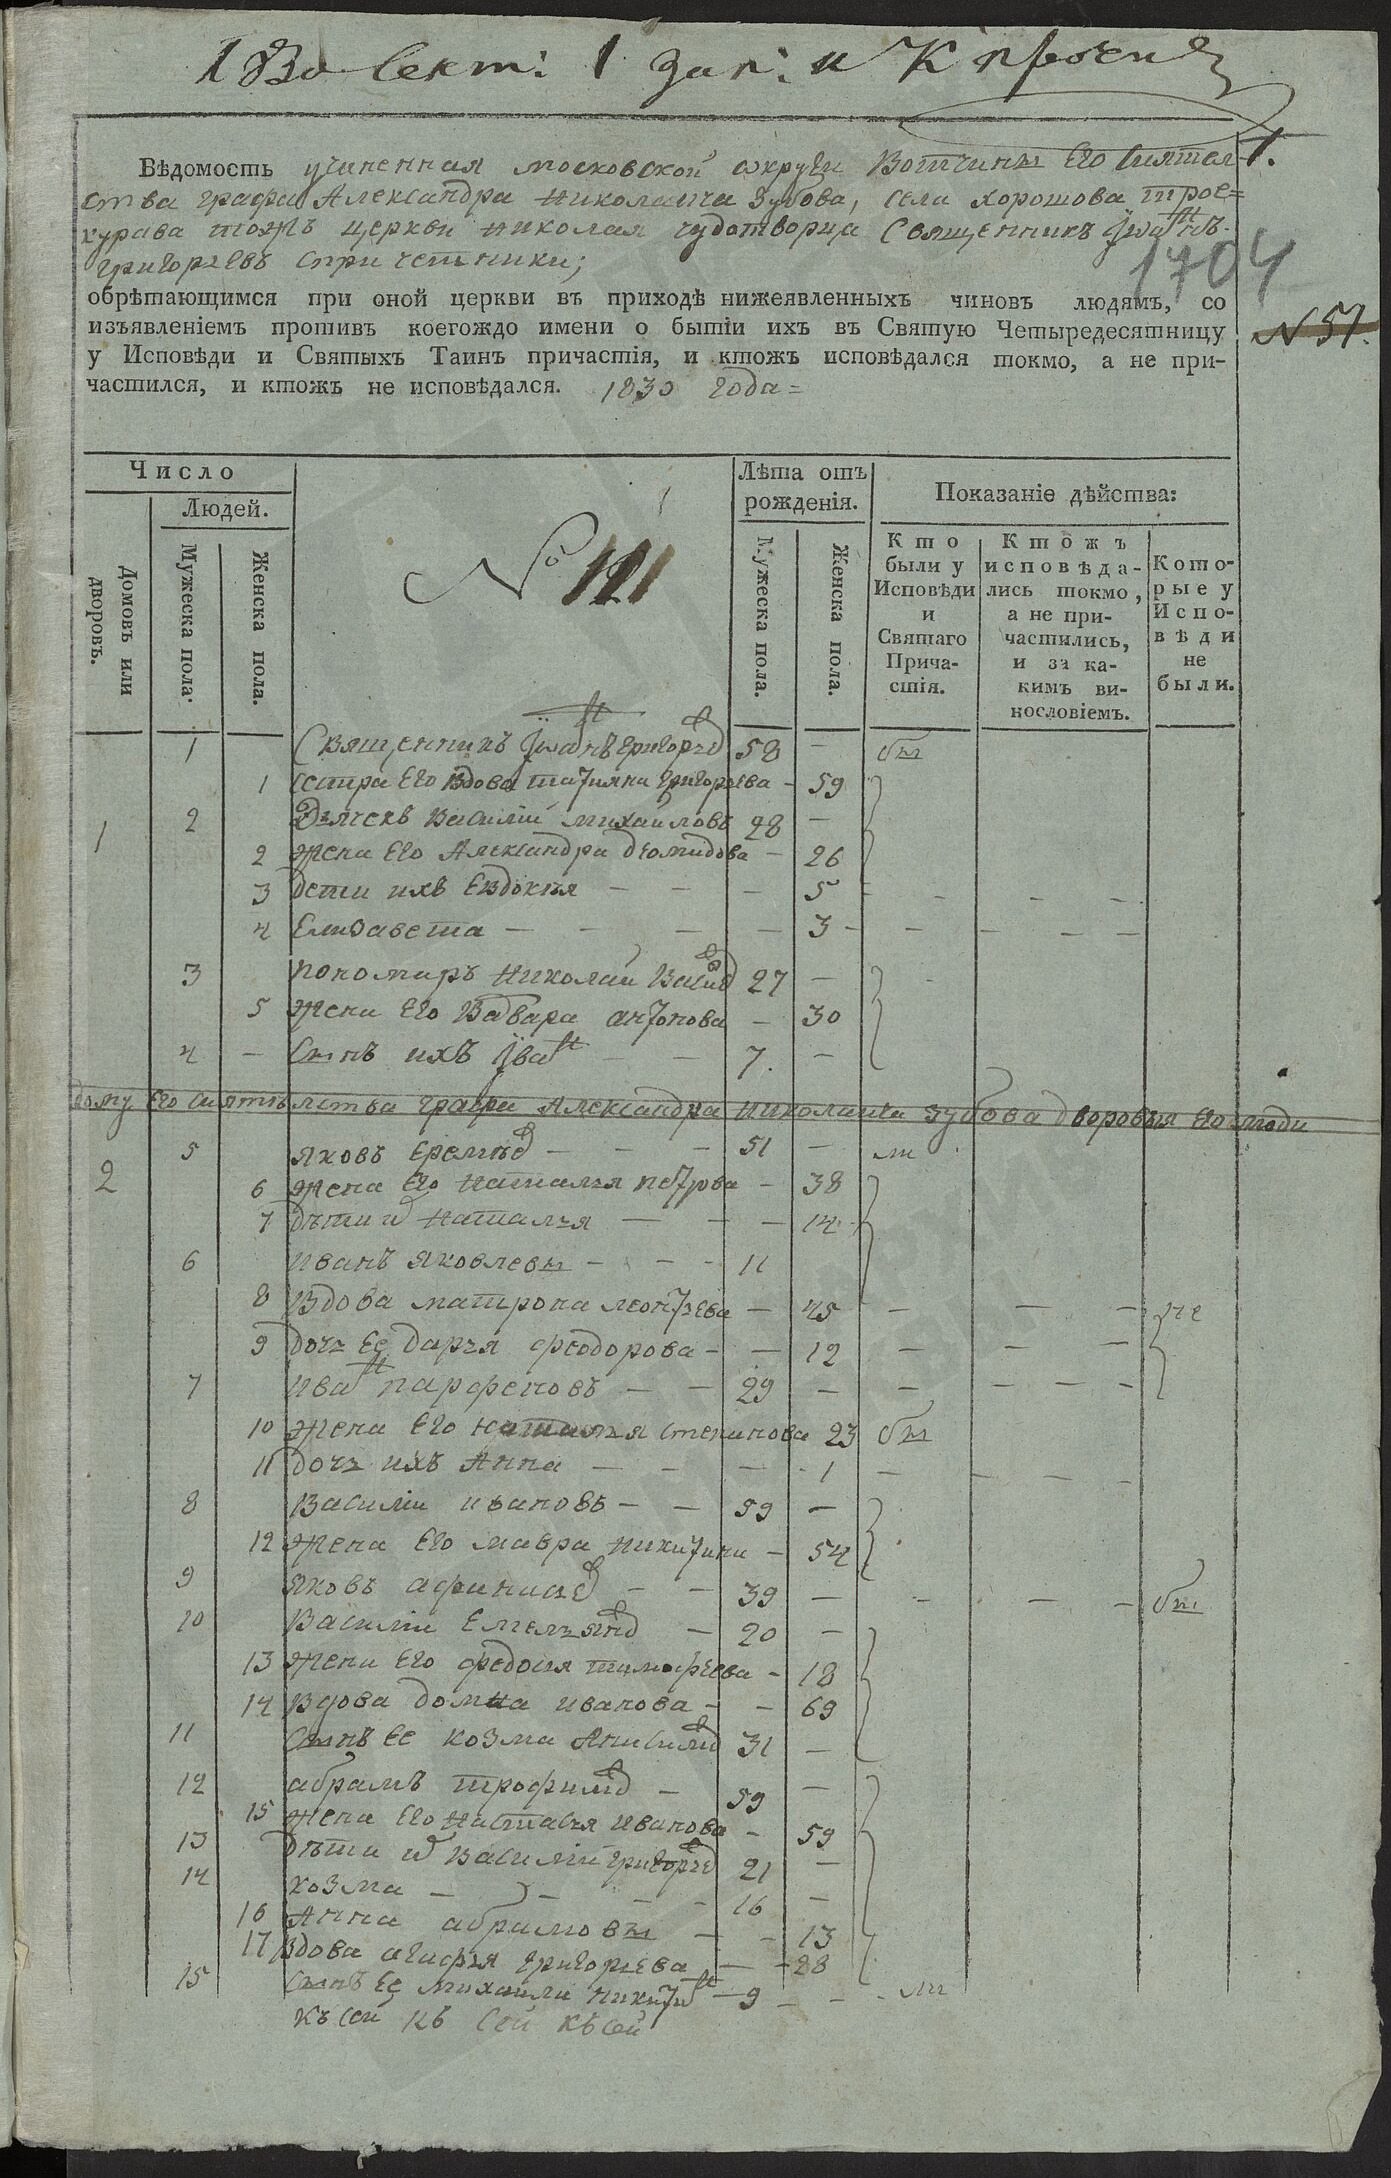 Вѣдомость учиненная московской округи Вотчины Его Сиятел
ства графа Александра Николаича Зубова, села хорошова трое=
курава тожъ церкви николая чудотворца Священникъ Iоаннъ
григорьевъ спричетники;
1704
обрѣтающимся при оной церкви въ приходѣ нижеявленныхъ чиновъ людямъ, со
изъявленіемъ противъ коегождо имени о бытіи ихъ въ Святую Четыредесятницу
N 57.
у Исповѣди и Святыхъ Таинъ причастія, и ктожъ исповѣдался токмо, а не при-
частился, и ктожъ не исповѣдался. 1830 года=
Число
Людей.
Домовъ или дворовъ.
Мужеска пола.
Женска пола.
№ 121
Лѣта отъ рожденія.
Мужеска пола.
Женска пола.
Показаніе дѣйства:
Кто были у Исповѣди и Святаго Прича-стія.
Ктожъ исповѣда-лись токмо, а не при-частились, и за ка-кимъ ви-нословіемъ.
Кото-рые у Испо-вѣди не были.
1 Священникъ Iоаннъ григорьев 58 — бы
1 сестра Его вдова татияна григорьева — 59
2 Дьячекъ Василій михаиловъ 28 —
1
2 жена Его Александра диомидова — 26
3 дети ихъ Евдокия — — — 5
4 Елизавета — — — — 3 —
3 пономарь николай Васил 27 —
5 жена Его Варвара антонова — 30
4 — сынъ ихъ Iван — — 7. —
дому Его сиятельства графа Александра николаича зубова дворовыя Его люди
5 яковъ Еремеев — — — 51 — ли
2
6 жена Его наталья петрова — 38
7 дѣти их наталья — — — 14
6 иванъ яковлевы — — — 11
8 вдова матрона леонтьева — 45 — — — не
9 дочь Ее дарья феодорова — — 12 — — —
7 иван парфеновъ — — 29 — — — — —
10 жена Его наталья степанова 23 бы
11 дочь ихъ Анна — — — 1 — — — —
8 Василіи ивановъ — — 59 —
12 жена Его мавра никитина — 54
9 яковъ афанасьев — — 39 — — — — бы
10 Василіи Емельянов — 20 —
13 жена Его федосия тимофеева — 18
14 вдова домна иванова — — 69
11 сынъ Ее козма Анисимов 31 —
12 абрамъ трофимов — 59 —
15 жена Его настасья иванова — 59
13 дѣти их василіи григорьев 21 —
14 козма — — — — 16 —
16 Анна абрамовы — — 13
17 вдова агафья григорьева — — 28
15 сынъ Ее михаила никитин — 9 — — — ли